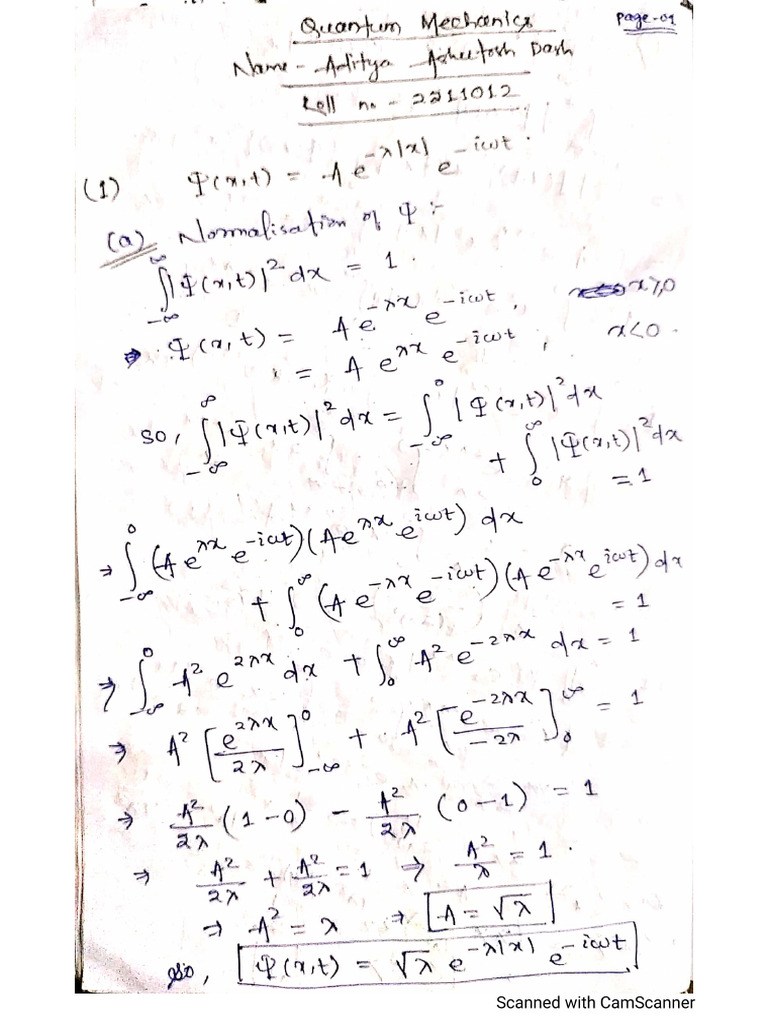 Quantum Mechanics
Page-01
Name - Aditya Asheetosh Dash
Roll no - 2211012
(1) Ψ(x,t) = A e^{-λ|x|} e^{-iωt}.
(a) Normalisation of Ψ :-
∫_{-∞}^{∞} |Ψ(x,t)|² dx = 1.
⇒ Ψ(x,t) = A e^{-λx} e^{-iωt}, x≥0
= A e^{λx} e^{-iωt}, x<0.
so, ∫_{-∞}^{∞} |Ψ(x,t)|² dx = ∫_{-∞}^{0} |Ψ(x,t)|² dx
+ ∫_{0}^{∞} |Ψ(x,t)|² dx
= 1
⇒ ∫_{-∞}^{0} (A e^{λx} e^{-iωt})(A e^{λx} e^{iωt}) dx
+ ∫_{0}^{∞} (A e^{-λx} e^{-iωt})(A e^{-λx} e^{iωt}) dx
= 1
⇒ ∫_{-∞}^{0} A² e^{2λx} dx + ∫_{0}^{∞} A² e^{-2λx} dx = 1
⇒ A² [e^{2λx}/2λ]_{-∞}^{0} + A² [e^{-2λx}/-2λ]_{0}^{∞} = 1
⇒ A²/2λ (1-0) - A²/2λ (0-1) = 1
⇒ A²/2λ + A²/2λ = 1 ⇒ A²/λ = 1.
⇒ A² = λ ⇒ A = √λ
so, Ψ(x,t) = √λ e^{-λ|x|} e^{-iωt}
Scanned with CamScanner